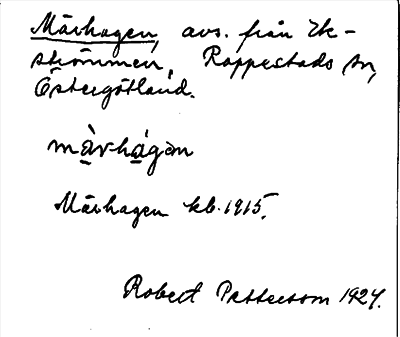 Mårhagen, avs. från Ek-
strömmen, Rappestads sn,
Östergötland.
màrhágən
Mårhagen kb. 1915.
Robert Pettersson 1927.